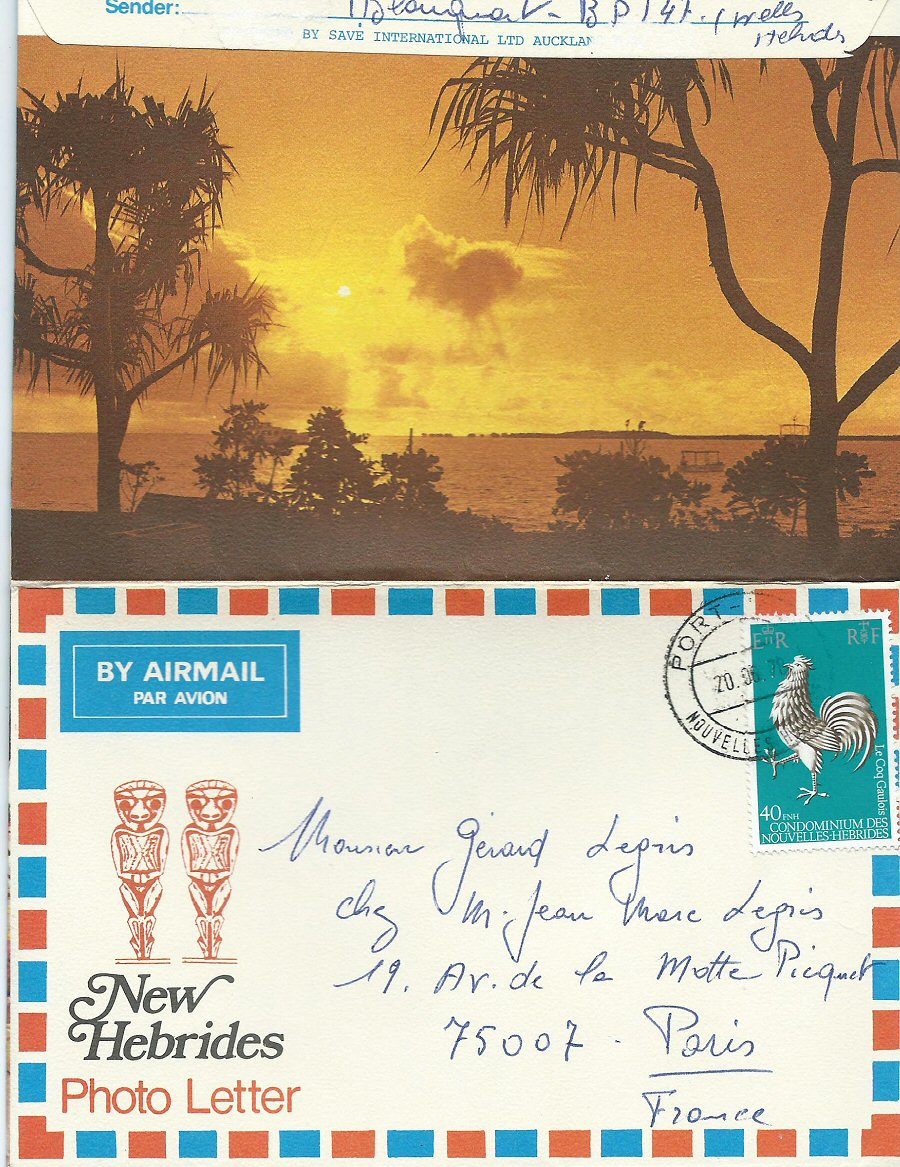 Sender: Blanquart - BP 141. (Wells
Hebrids
BY SAVÉ INTERNATIONAL LTD AUCKLAN
BY AIRMAIL
PAR AVION
PORT-
20.
NOUVELLES
E R
R F
Le Coq Gaulois
40 FNH
CONDOMINIUM DES
NOUVELLES-HEBRIDES
Monsieur Gérard Legris
chez M. Jean Marc Legris
19. Av. de la Motte Picquet
75007 - Paris
France
New
Hebrides
Photo Letter